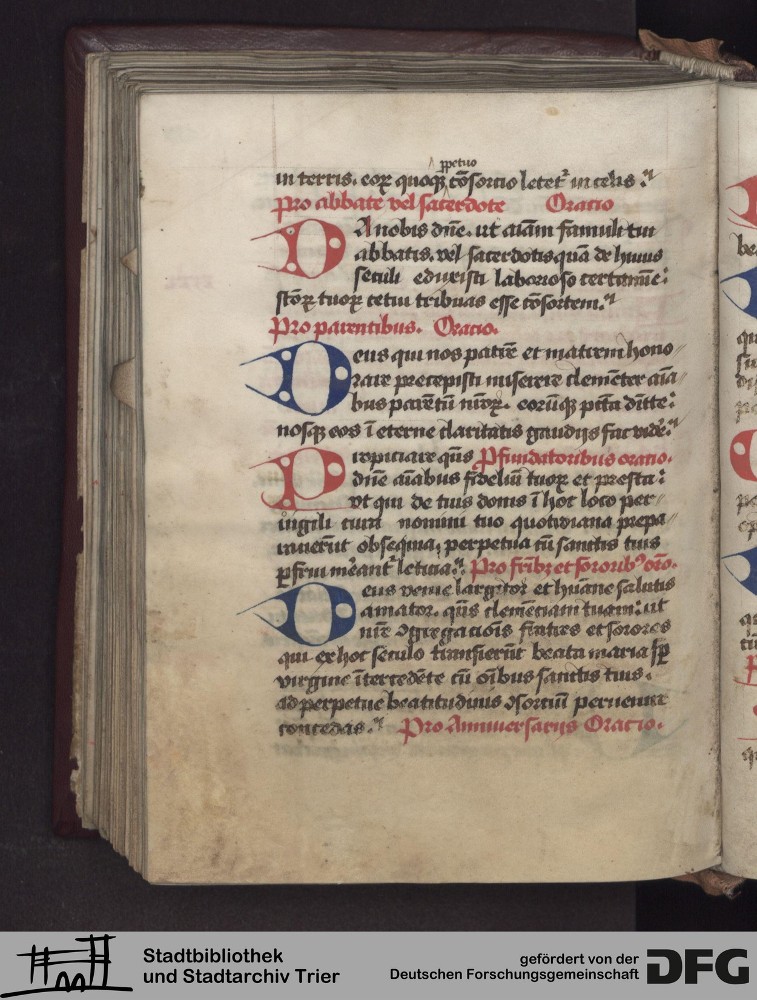 ꝑpetuo
in terris. eoꝝ quoqꝫ ꝯsorcio letet᷑ in celis.
Pro abbate vel sacerdote Oracio
DA nobis dñe. ut aīam famuli tui
abbatis. vel sacerdotis quā de huius
seculi eduxisti laborioso certamīe:
sc̄oꝝ tuoꝝ cetui tribuas esse ꝯsortem.
Pro parentibus. Oracio.
Deus qui nos patrē et matrem hono
rare precepisti miserere clemēter aīa
bus parētū nr̄oꝝ. eorūqꝫ pctā dītte:
nosqꝫ eos ī eterne claritatis gaudijs fac videꝛ̄.
Propiciare qūs P fundatoribus oratio.
dñe aīabus fideliū tuoꝝ et presta:
vt qui de tuis donis ī hoc loco per
uigili cura nomini tuo quotidiana prepa
rauerūt obsequia, perpetua cū sanctis tuis
ꝑfrui meant᷑ leticia. Pro frībꝫ et sororibꝰ oro.
Deus venie largitor et huāne salutis
amator. qūs clemenciam tuam: ut
nr̄e ꝯgregacīois fratres et sorores
qui ex hoc seculo transierūt beata maria sꝑ
virgine ītercedēte cū oībus sanctis tuis.
ad perpetue beatitudinis ꝯsorciū peruenire
concedas. Pro Anniuersarijs Oracio.
Stadtbibliothek
und Stadtarchiv Trier
gefördert von der
Deutschen Forschungsgemeinschaft
DFG